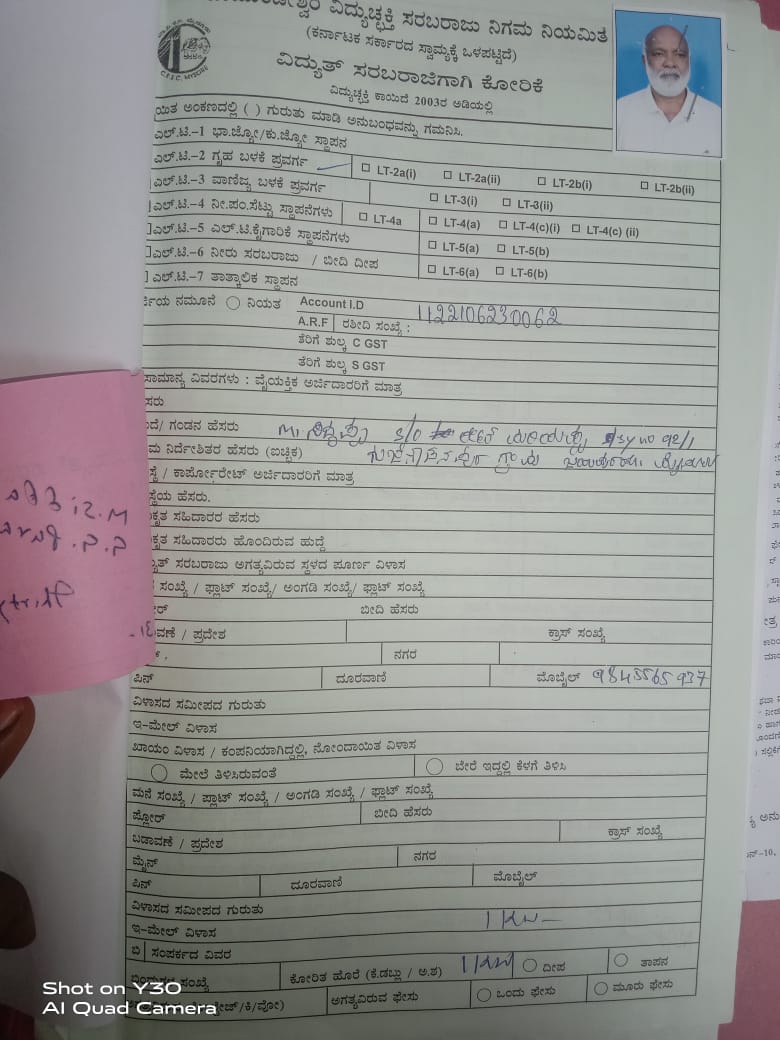 ವಿದ್ಯುಚ್ಛಕ್ತಿ ಸರಬರಾಜು ನಿಗಮ ನಿಯಮಿತ
(ಕರ್ನಾಟಕ ಸರ್ಕಾರದ ಸ್ವಾಮ್ಯಕ್ಕೆ ಒಳಪಟ್ಟಿದೆ)
C.E.S.C. MYSORE
ವಿದ್ಯುತ್ ಸರಬರಾಜಿಗಾಗಿ ಕೋರಿಕೆ
ವಿದ್ಯುಚ್ಛಕ್ತಿ ಕಾಯಿದೆ 2003ರ ಅಡಿಯಲ್ಲಿ
ಅಂಕಣದಲ್ಲಿ ( ) ಗುರುತು ಮಾಡಿ ಅನುಬಂಧವನ್ನು ಗಮನಿಸಿ.
ಎಲ್.ಟಿ.-1 ಭಾ.ಜ್ಯೋ/ಕು.ಜ್ಯೋ ಸ್ಥಾಪನ
ಎಲ್.ಟಿ.-2 ಗೃಹ ಬಳಕೆ ಪ್ರವರ್ಗ LT-2a(i) LT-2a(ii) LT-2b(i) LT-2b(ii)
ಎಲ್.ಟಿ.-3 ವಾಣಿಜ್ಯ ಬಳಕೆ ಪ್ರವರ್ಗ LT-3(i) LT-3(ii)
ಎಲ್.ಟಿ.-4 ನೀ.ಪಂ.ಸೆಟ್ಟು ಸ್ಥಾಪನೆಗಳು LT-4a LT-4(a) LT-4(c)(i) LT-4(c) (ii)
ಎಲ್.ಟಿ.-5 ಎಲ್.ಟಿ.ಕೈಗಾರಿಕೆ ಸ್ಥಾಪನೆಗಳು LT-5(a) LT-5(b)
ಎಲ್.ಟಿ.-6 ನೀರು ಸರಬರಾಜು / ಬೀದಿ ದೀಪ LT-6(a) LT-6(b)
ಎಲ್.ಟಿ.-7 ತಾತ್ಕಾಲಿಕ ಸ್ಥಾಪನ
ನಮೂನೆ ನಿಯತ Account I.D 1122106230062
A.R.F ರಶೀದಿ ಸಂಖ್ಯೆ :
ತೆರಿಗೆ ಶುಲ್ಕ C GST
ತೆರಿಗೆ ಶುಲ್ಕ S GST
ಸಾಮಾನ್ಯ ವಿವರಗಳು : ವೈಯಕ್ತಿಕ ಅರ್ಜಿದಾರರಿಗೆ ಮಾತ್ರ
ಗಂಡನ ಹೆಸರು S/O
ನಿರ್ದೇಶಿತರ ಹೆಸರು (ಐಚ್ಛಿಕ) ಗ್ರಾಮ
/ ಕಾರ್ಪೋರೇಟ್ ಅರ್ಜಿದಾರರಿಗೆ ಮಾತ್ರ
ಹೆಸರು.
ಸಹಿದಾರರ ಹೆಸರು
ಸಹಿದಾರರು ಹೊಂದಿರುವ ಹುದ್ದೆ
ಸರಬರಾಜು ಅಗತ್ಯವಿರುವ ಸ್ಥಳದ ಪೂರ್ಣ ವಿಳಾಸ
ಸಂಖ್ಯೆ / ಫ್ಲಾಟ್ ಸಂಖ್ಯೆ/ ಅಂಗಡಿ ಸಂಖ್ಯೆ/ ಫ್ಲಾಟ್ ಸಂಖ್ಯೆ
ಬೀದಿ ಹೆಸರು
/ ಪ್ರದೇಶ ಕ್ರಾಸ್ ಸಂಖ್ಯೆ
ನಗರ
ಪಿನ್ ದೂರವಾಣಿ ಮೊಬೈಲ್ 9845565937
ವಿಳಾಸದ ಸಮೀಪದ ಗುರುತು
ಇ-ಮೇಲ್ ವಿಳಾಸ
ಖಾಯಂ ವಿಳಾಸ / ಕಂಪನಿಯಾಗಿದ್ದಲ್ಲಿ, ನೋಂದಾಯಿತ ವಿಳಾಸ
ಮೇಲೆ ತಿಳಿಸಿರುವಂತೆ ಬೇರೆ ಇದ್ದಲ್ಲಿ ಕೆಳಗೆ ತಿಳಿಸಿ
ಮನೆ ಸಂಖ್ಯೆ / ಪ್ಲಾಟ್ ಸಂಖ್ಯೆ / ಅಂಗಡಿ ಸಂಖ್ಯೆ / ಫ್ಲಾಟ್ ಸಂಖ್ಯೆ
ಪ್ಲೋರ್ ಬೀದಿ ಹೆಸರು
ಬಡಾವಣೆ / ಪ್ರದೇಶ ಕ್ರಾಸ್ ಸಂಖ್ಯೆ
ಮೈನ್ ನಗರ
ಪಿನ್ ದೂರವಾಣಿ ಮೊಬೈಲ್
ವಿಳಾಸದ ಸಮೀಪದ ಗುರುತು
ಇ-ಮೇಲ್ ವಿಳಾಸ 1 KW
ಬಿ ಸಂಪರ್ಕದ ವಿವರ
ಸಂಖ್ಯೆ ಕೋರಿತ ಹೊರೆ (ಕೆ.ಡಬ್ಲು / ಅ.ಶ) 1 KW ದೀಪ ತಾಪನ
ಅಗತ್ಯವಿರುವ ಫೇಸು ಒಂದು ಫೇಸು ಮೂರು ಫೇಸು
Shot on Y30
AI Quad Camera